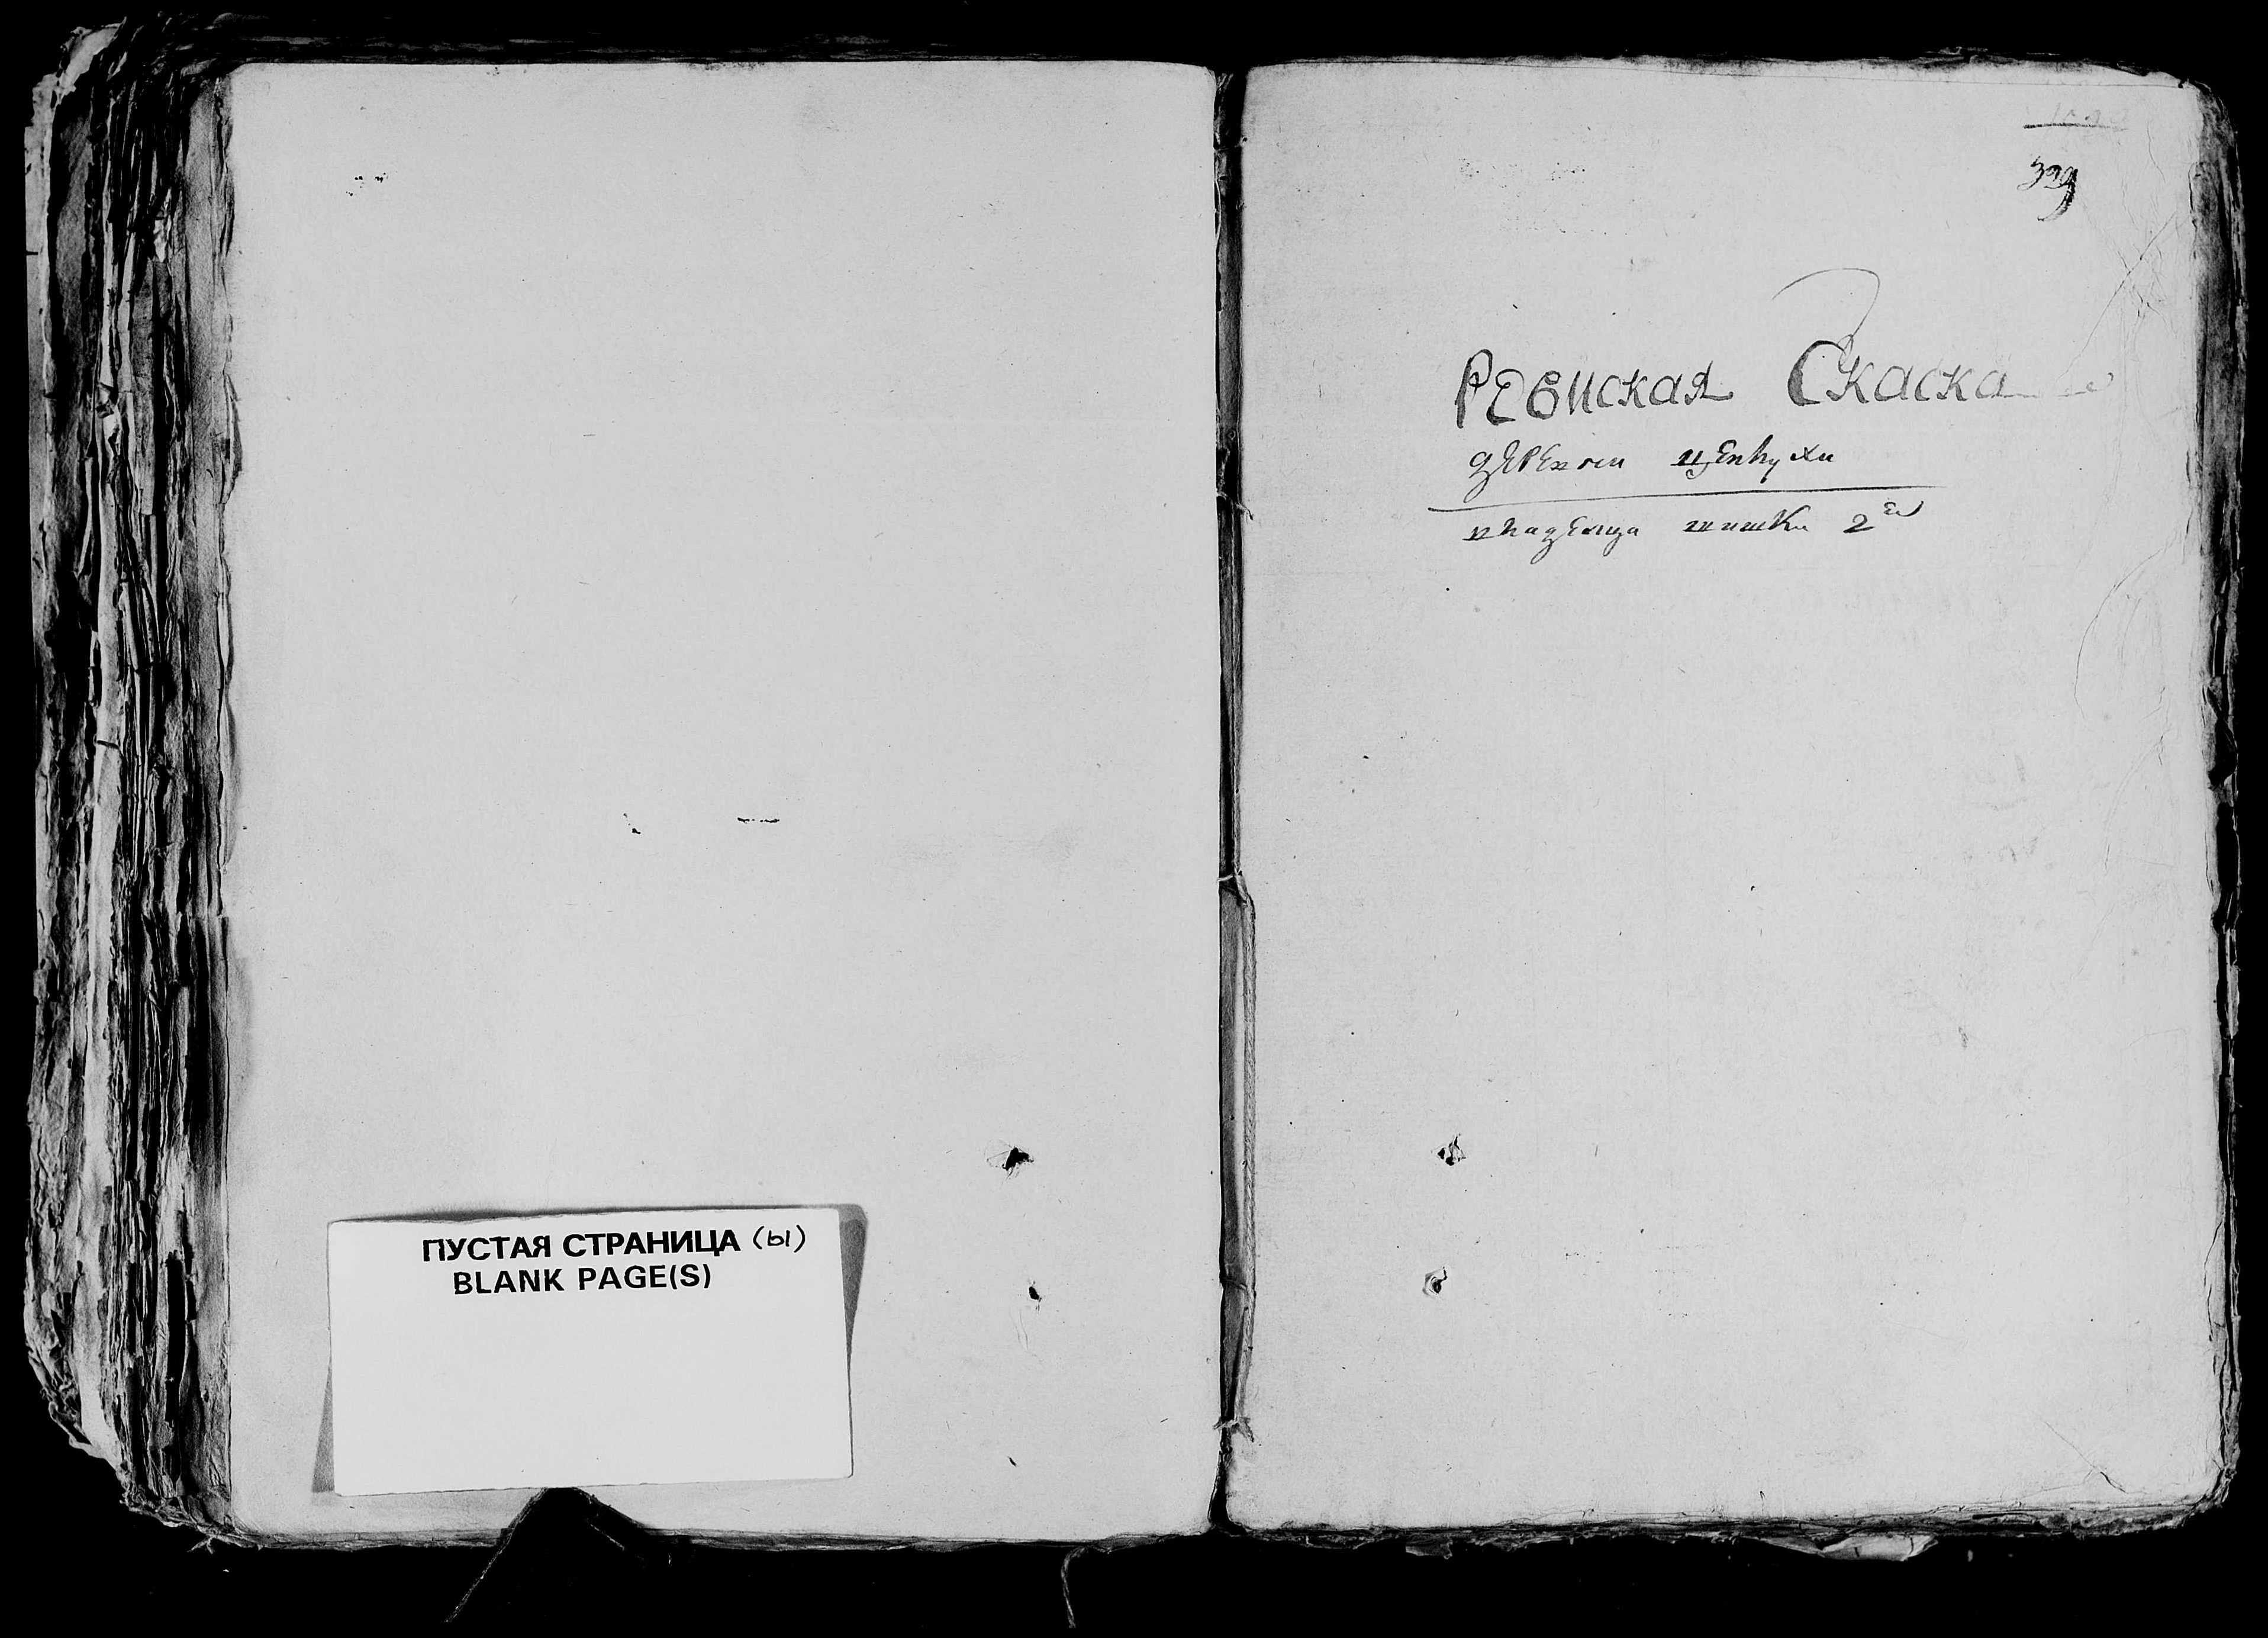 ПУСТАЯ СТРАНИЦА (ы)
BLANK PAGE(S)
329
Ревиская Скаска
деревни
владенца 2ей